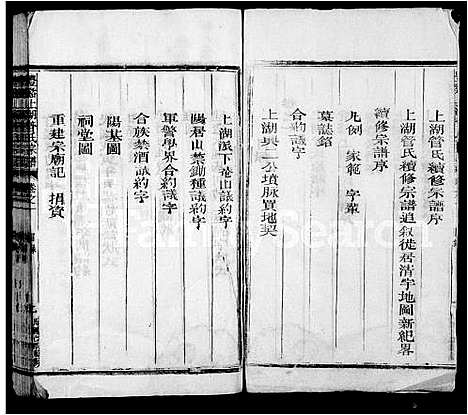 上湖管氏續修宗譜序
上湖管氏續修宗譜追叙徙居清宇地圖新紀畧
續修宗譜序
凡例 家範 字軰
墓誌銘
合約議字
上湖興二公墳脉買地契
上湖派下卷山議約字
陽居山禁鋤種議約字
軍警學界合約議字
合族禁酒議約字
陽基圖
祠堂圖
重建宗廟記 捐資
FamilySearch